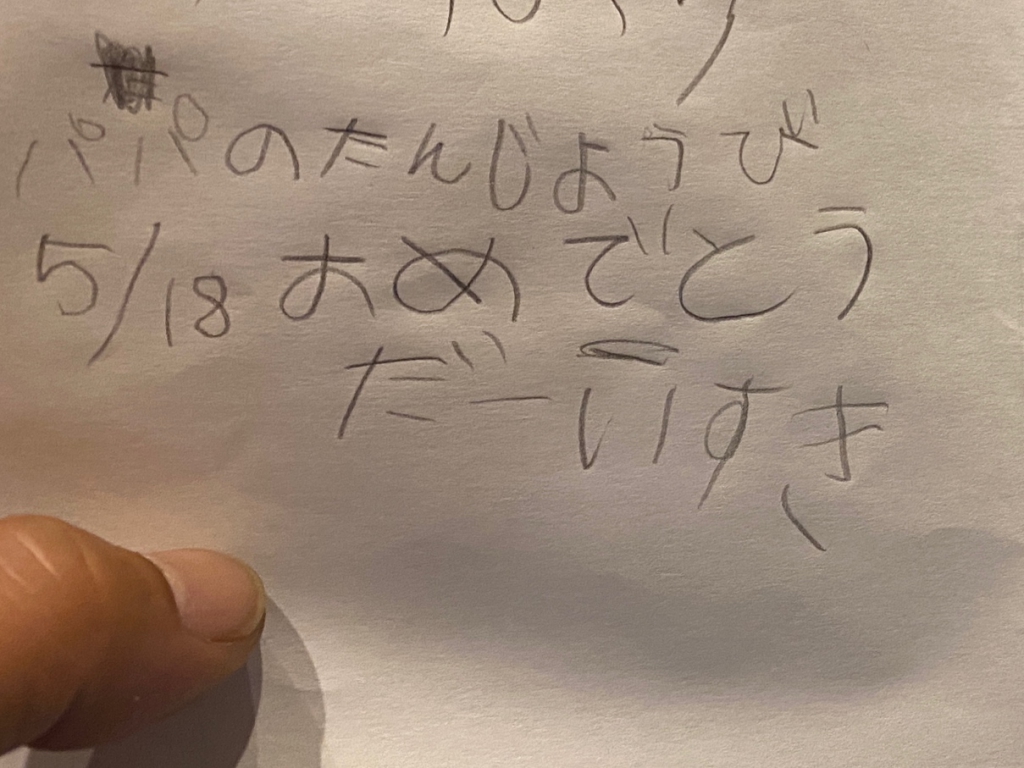 パパのたんじょうび
5/18 おめでとう
だーいすき